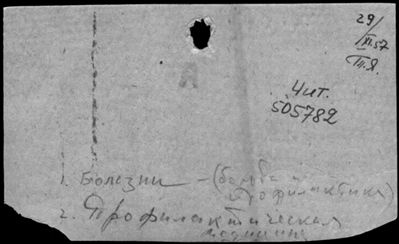 29/XI.57
Чит.
505782
1. Болезни - (борьба и
профилактика)
2. Профилактическая
медицина